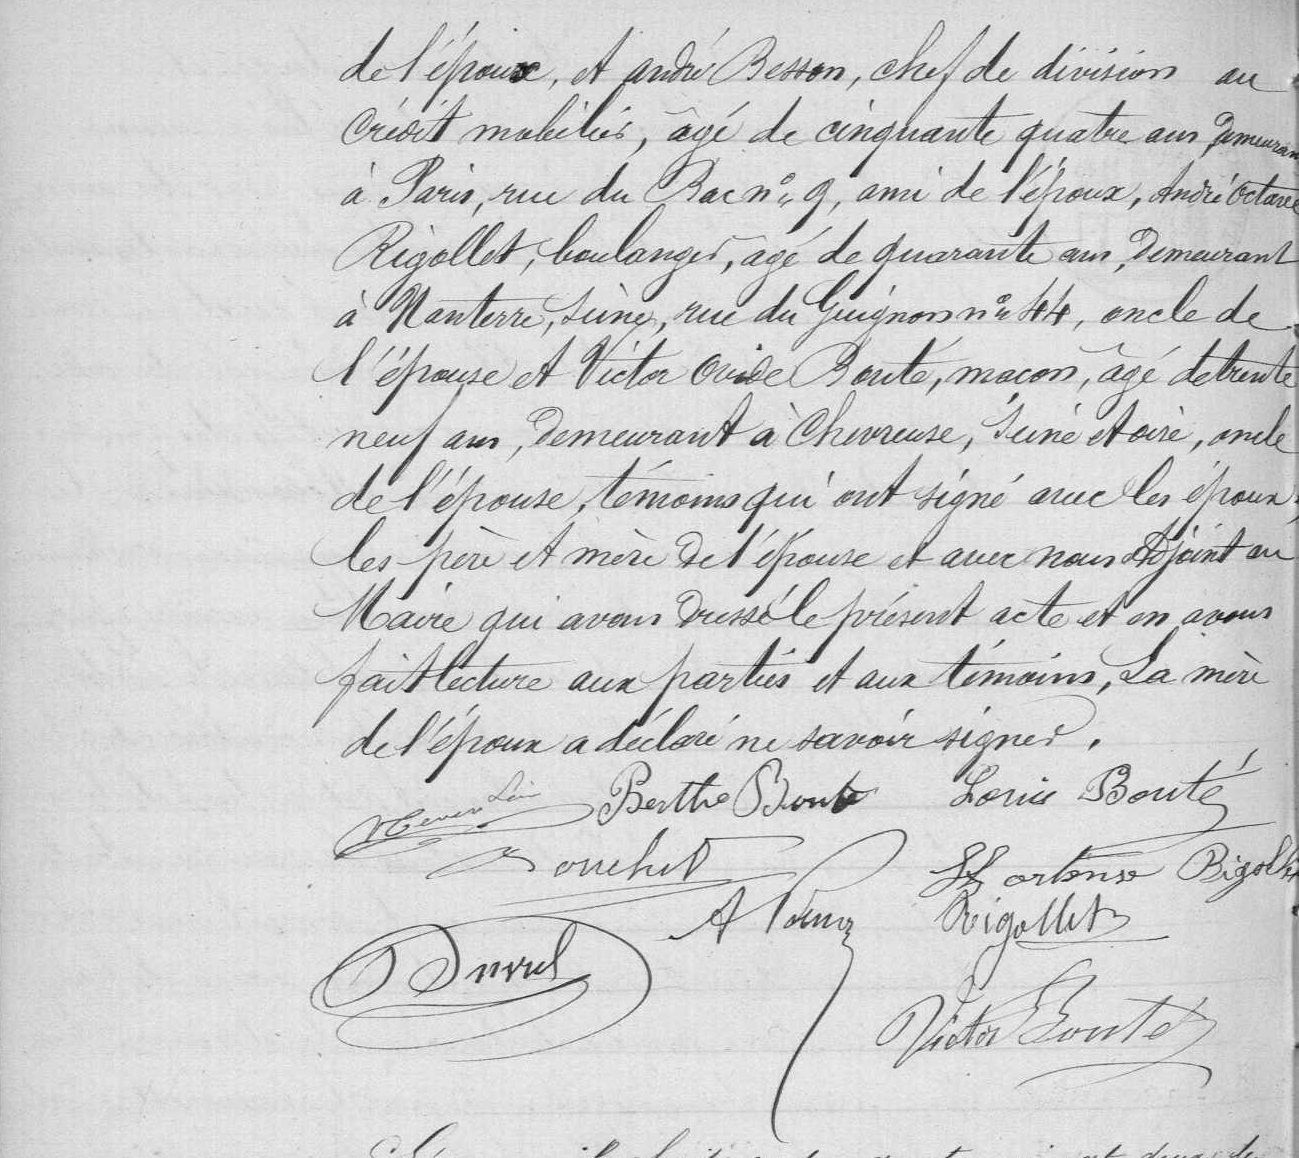 de l'époux, et André Besson, chef de division au
Crédit mobilier, âgé de cinquante quatre ans, demeurant
à Paris, rue du Bac n° 9, ami de l'époux, André Octave
Rigollet, boulanger, âgé de quarante ans, demeurant
à Nanterre, Seine, rue du Guignon n° 44, oncle de
l'épouse et Victor Ovide Bouté, maçon, âgé de trente
neuf ans, demeurant à Chevreuse, Seine et Oise, oncle
de l'épouse, témoins qui ont signé avec les époux,
les père et mère de l'épouse et avec nous Adjoint au
Maire qui avons dressé le présent acte et en avons
fait lecture aux parties et aux témoins, La mère
de l'époux a déclaré ne savoir signer.
Berthe Bouté Louis Bouté
Hortense Rigollet
A Rigollet
Victor Bouté